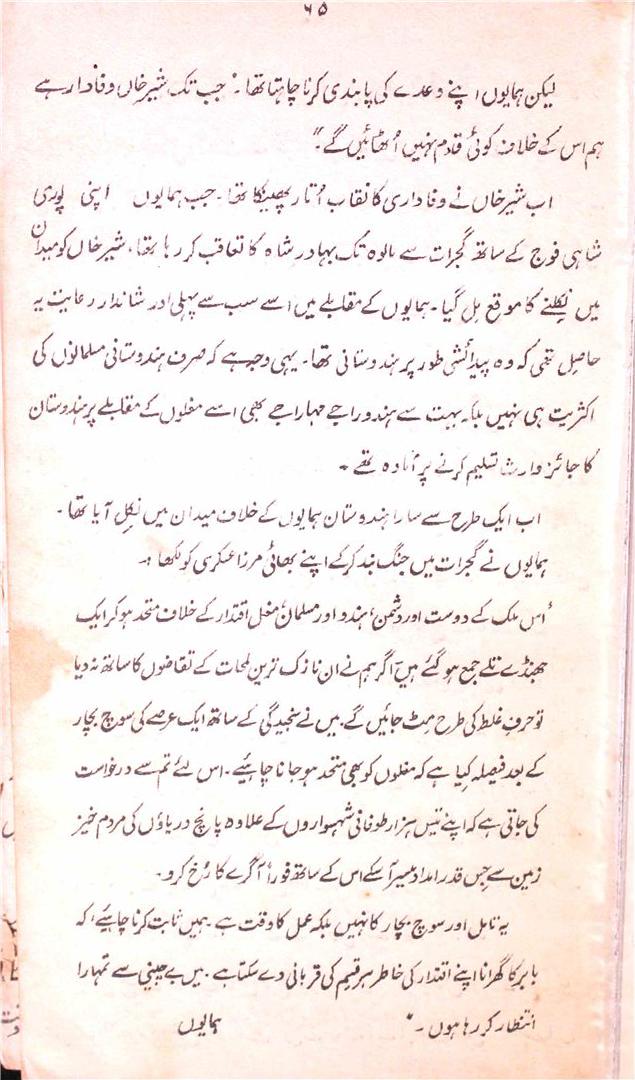 ۶۵
لیکن ہمایوں اپنے وعدے کی پابندی کرنا چاہتا تھا۔ "جب تک شیرخاں وفادار ہے
ہم اس کے خلاف کوئی قدم نہیں اُٹھائیں گے۔"
اب شیرخاں نے وفاداری کا نقاب اُتار پھینکا تھا۔ جب ہمایوں اپنی پوری
شاہی فوج کے ساتھ گجرات سے مالوہ تک بہادر شاہ کا تعاقب کر رہا تھا، شیرخاں کو میدان
میں نکلنے کا موقع مل گیا۔ ہمایوں کے مقابلے میں اسے سب سے پہلی اور شاندار رعایت یہ
حاصل تھی کہ وہ پیدائشی طور پر ہندوستانی تھا۔ یہی وجہ ہے کہ صرف ہندوستانی مسلمانوں کی
اکثریت ہی نہیں بلکہ بہت سے ہندو راجے مہاراجے بھی اسے مغلوں کے مقابلے پر ہندوستان
کا جائز وارث تسلیم کرنے پر آمادہ تھے۔
اب ایک طرح سے سارا ہندوستان ہمایوں کے خلاف میدان میں نکل آیا تھا۔
ہمایوں نے گجرات میں جنگ بند کر کے اپنے بھائی مرزا عسکری کو لکھا :۔
"اس ملک کے دوست اور دشمن، ہندو اور مسلمان، مغل اقتدار کے خلاف متحد ہو کر ایک
جھنڈے تلے جمع ہو گئے ہیں اگر ہم نے ان نازک ترین لمحات کے تقاضوں کا ساتھ نہ دیا
تو حرفِ غلط کی طرح مٹ جائیں گے۔ میں نے سنجیدگی کے ساتھ ایک عرصے کی سوچ بچار
کے بعد فیصلہ کیا ہے کہ مغلوں کو بھی متحد ہو جانا چاہیئے۔ اس لئے تم سے درخواست
کی جاتی ہے کہ اپنے تیس ہزار طوفانی شہسواروں کے علاوہ پانچ دریاؤں کی مردم خیز
زمین سے جس قدر امداد میسر آ سکے اس کے ساتھ فوراً آگرے کا رُخ کرو۔
یہ تامل اور سوچ بچار کا نہیں بلکہ عمل کا وقت ہے۔ ہمیں ثابت کرنا چاہیئے کہ
بابر کا گھرانا اپنے اقتدار کی خاطر ہر قسم کی قربانی دے سکتا ہے۔ میں بے چینی سے تمہارا
انتظار کر رہا ہوں۔" ہمایوں